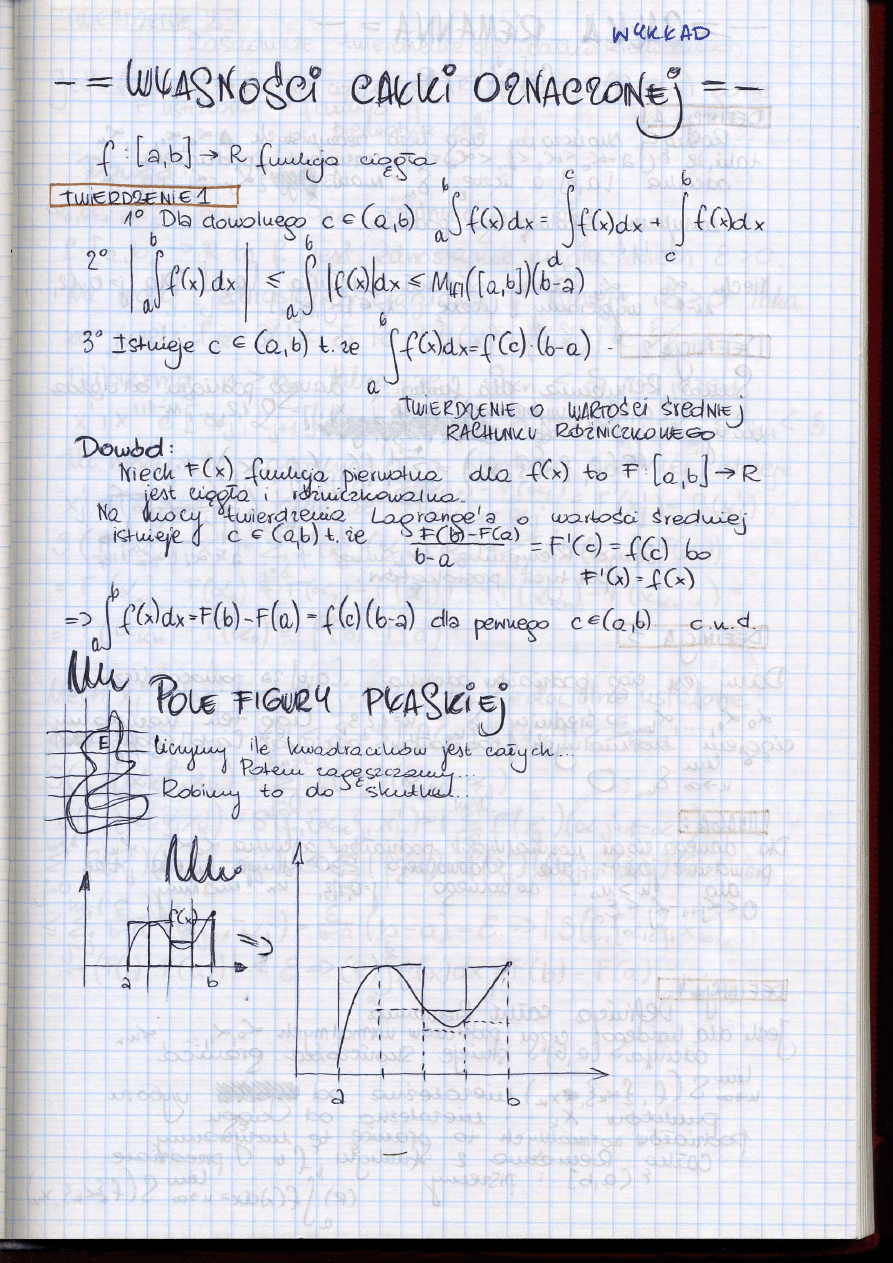 WYKŁAD
-= WŁASNOŚCI CAŁKI OZNACZONEJ =-
f : [a,b] → R funkcja ciągła
TWIERDZENIE 1
1° Dla dowolnego c ∈ (a,b) a∫b f(x)dx = ∫c f(x)dx + c∫b f(x)dx
2° | a∫b f(x)dx | ≤ a∫b |f(x)|dx ≤ M|f|([a,b])(b-a)
d
3° Istnieje c ∈ (a,b) t.że a∫b f(x)dx = f(c)·(b-a) -
TWIERDZENIE O WARTOŚCI ŚREDNIEJ
RACHUNKU RÓŻNICZKOWEGO
Dowód:
Niech F(x) funkcja pierwotna dla f(x) to F : [a,b] → R
jest ciągła i różniczkowalna.
Na mocy twierdzenia Lagrange'a o wartości średniej
istnieje c ∈ (a,b) t.że F(b)-F(a)/b-a = F'(c) = f(c) bo
F'(x) = f(x)
=> a∫b f(x)dx = F(b)-F(a) = f(c)(b-a) dla pewnego c∈(a,b) c.n.d.
POLE FIGURY PŁASKIEJ
E
Liczymy ile kwadracików jest całych...
Potem zagęszczamy...
Robimy to do skutku...
f(x)
a b
=>
a b